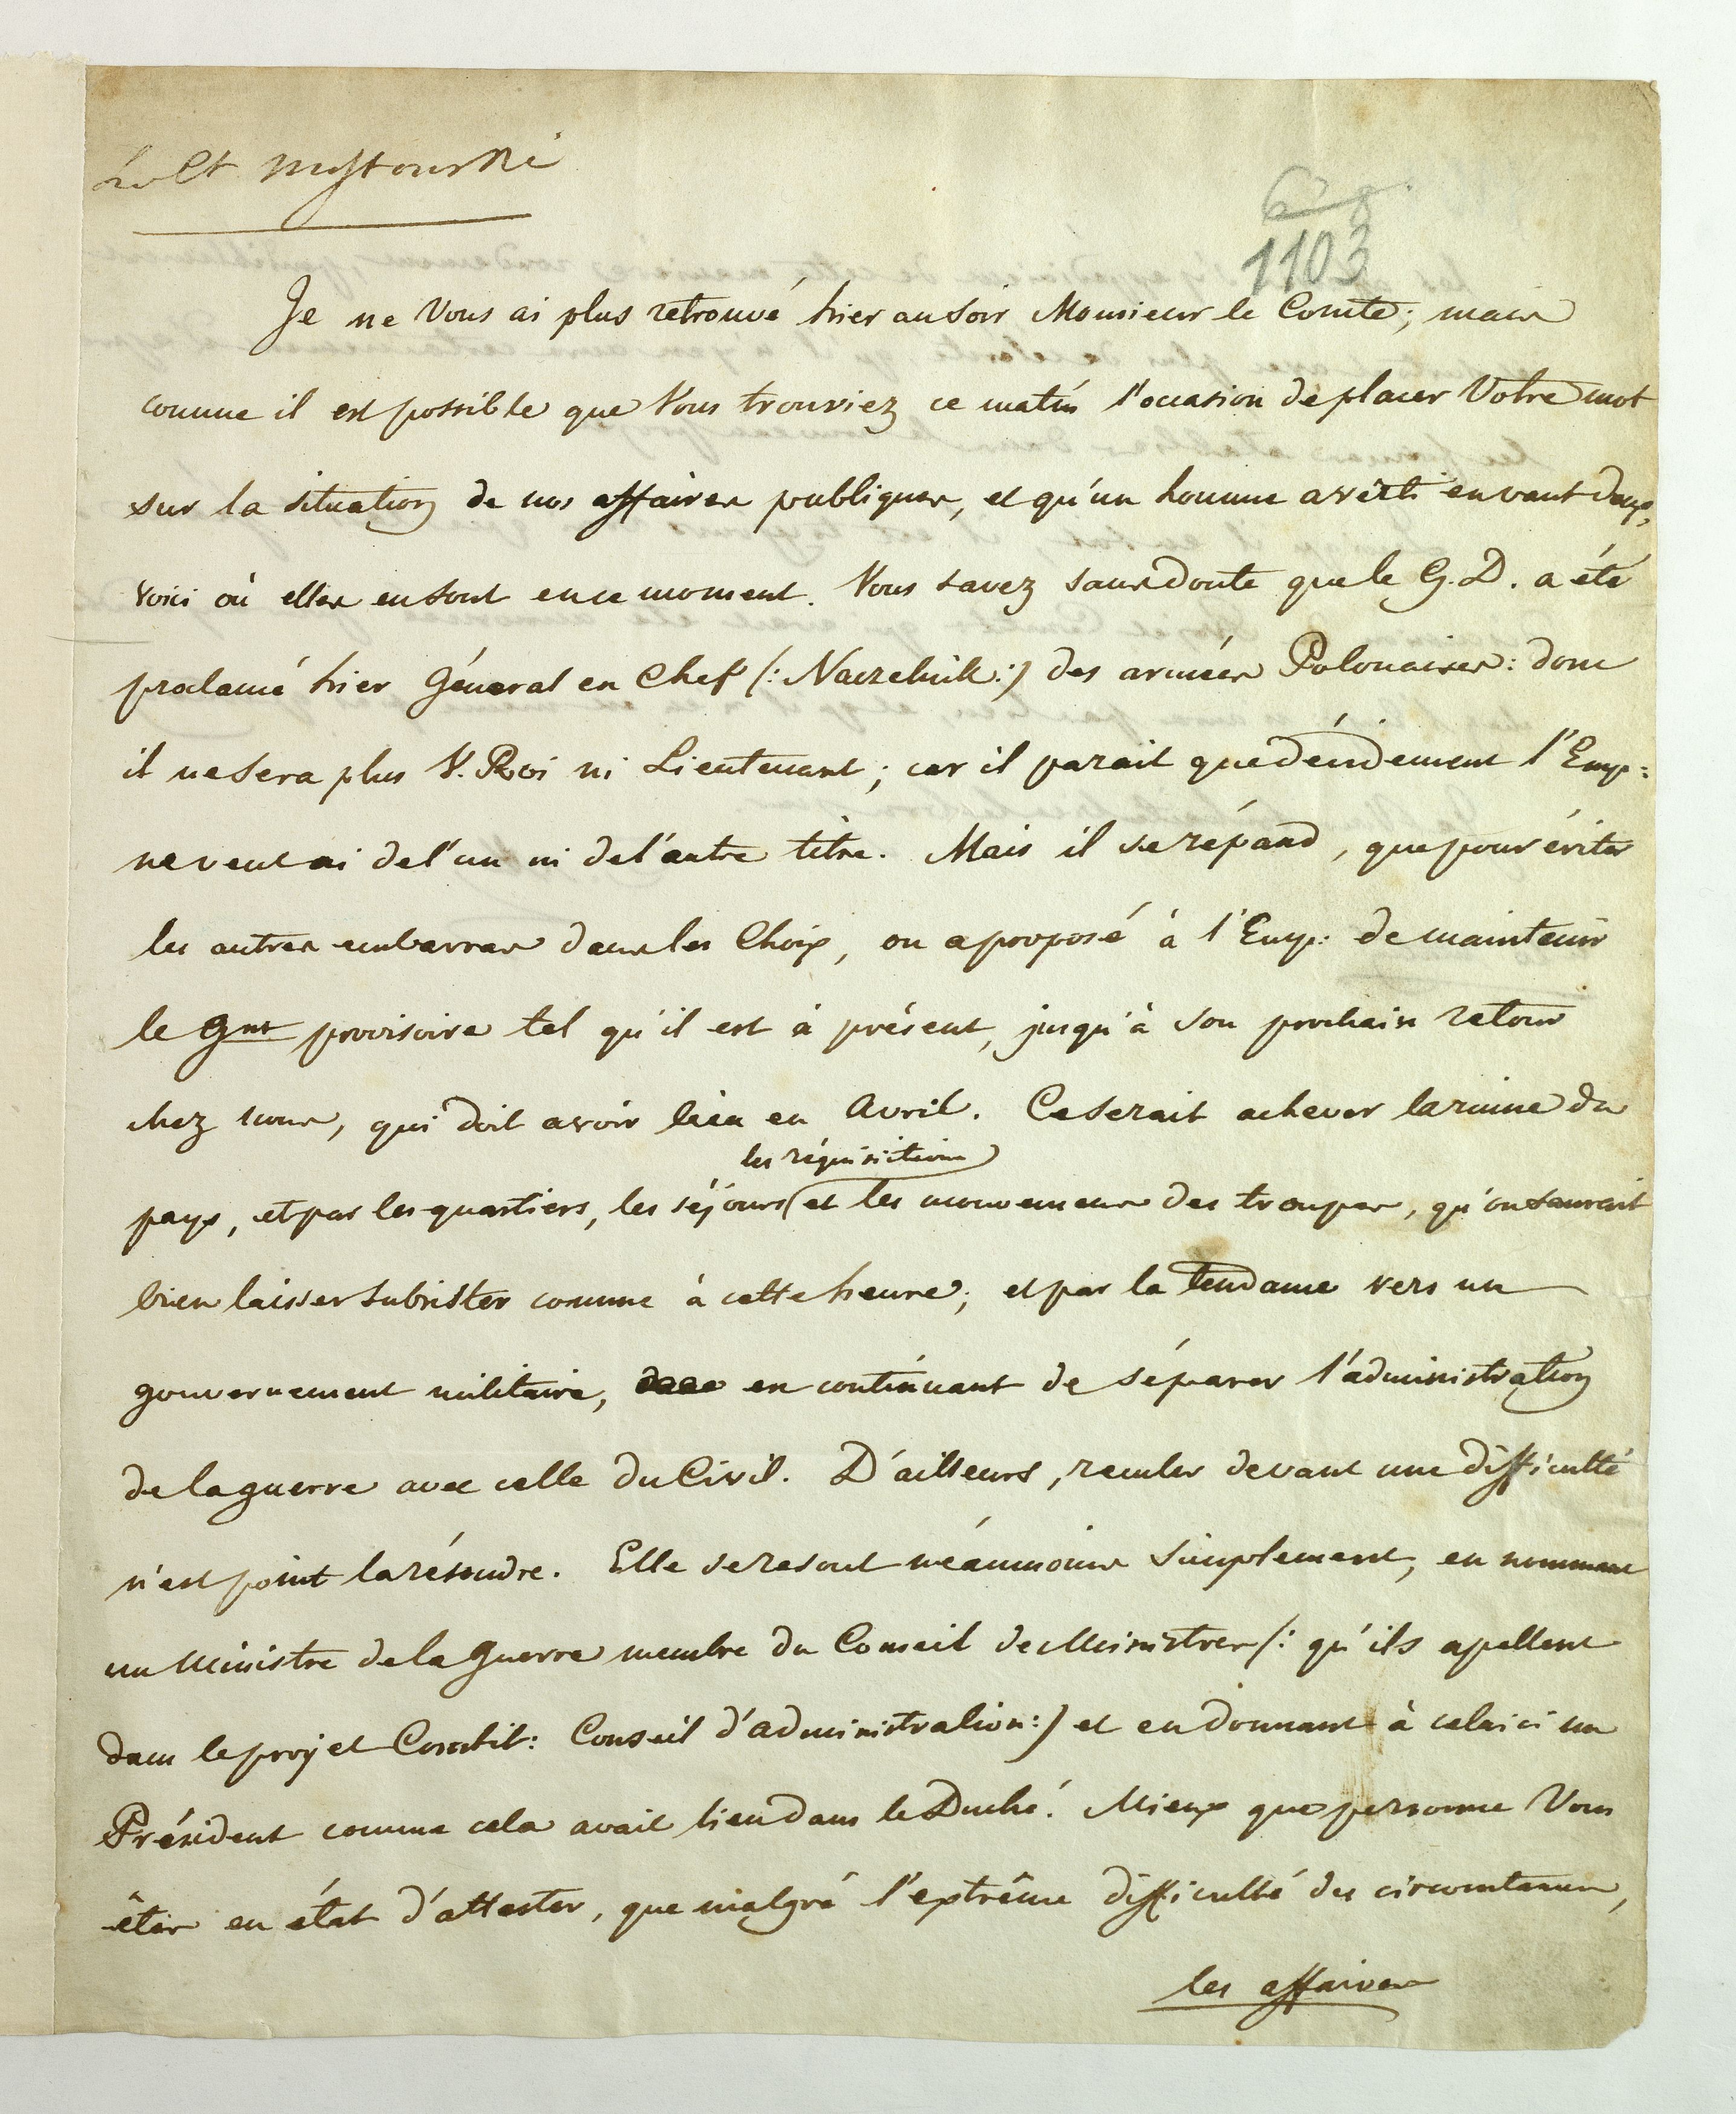 1103
Je ne Vous ai plus retrouvé hier au soir Monsieur le Comte; mais
comme il est possible que Vous trouviez ce matin l'occasion de placer Votre mot
sur la situation de nos affaires publiques, et qu'un homme averti en vaut deux,
voici où elles en sont en ce moment. Vous savez sans doute que le G. D. a été
proclamé hier Général en Chef /: Naczelnik :/ des armées Polonaises: donc
il ne sera plus V. Roi ni Lieutenant; car il parait que décidement l'Emp:
ne veut ni de l'un ni de l'autre titre. Mais il se répand, que pour éviter
les autres embarras dans les Choix, on a proposé à l'Emp: de maintenir
le Gnt provisoire tel qu'il est à présent, jusqu'à son prochain retour
chez nous, qui doit avoir lieu en Avril. Ce serait achever la ruine du
les réquisitions
pays, et par les quartiers, les séjours et les mouvemens des troupes, qu'on saurait
bien laisser subsister comme à cette heure; et par la tendance vers un
gouvernement militaire, en continuant de séparer l'administration
de la guerre avec celle du Civil. D'ailleurs, reculer devant une difficulté
n'est point la résoudre. Elle se resout néanmoins simplement, en nommant
un Ministre de la Guerre membre du Conseil de Ministres /: qu'ils apellent
dans le projet Constit: Conseil d'administration :/ et en donnant à celui ci un
Président comme cela avait lieu dans le Duché. Mieux que personne Vous
êtes en état d'attester, que malgré l'extrême difficulté des circonstances,
les affaires